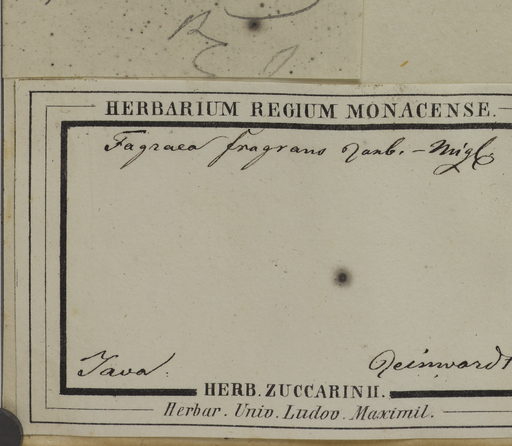 HERBARIUM REGIUM MONACENSE.
Fagraea fragrans Roxb. – Miql
Java.
Reinwardt
HERB. ZUCCARINII.
Herbar. Univ. Ludov. Maximil.